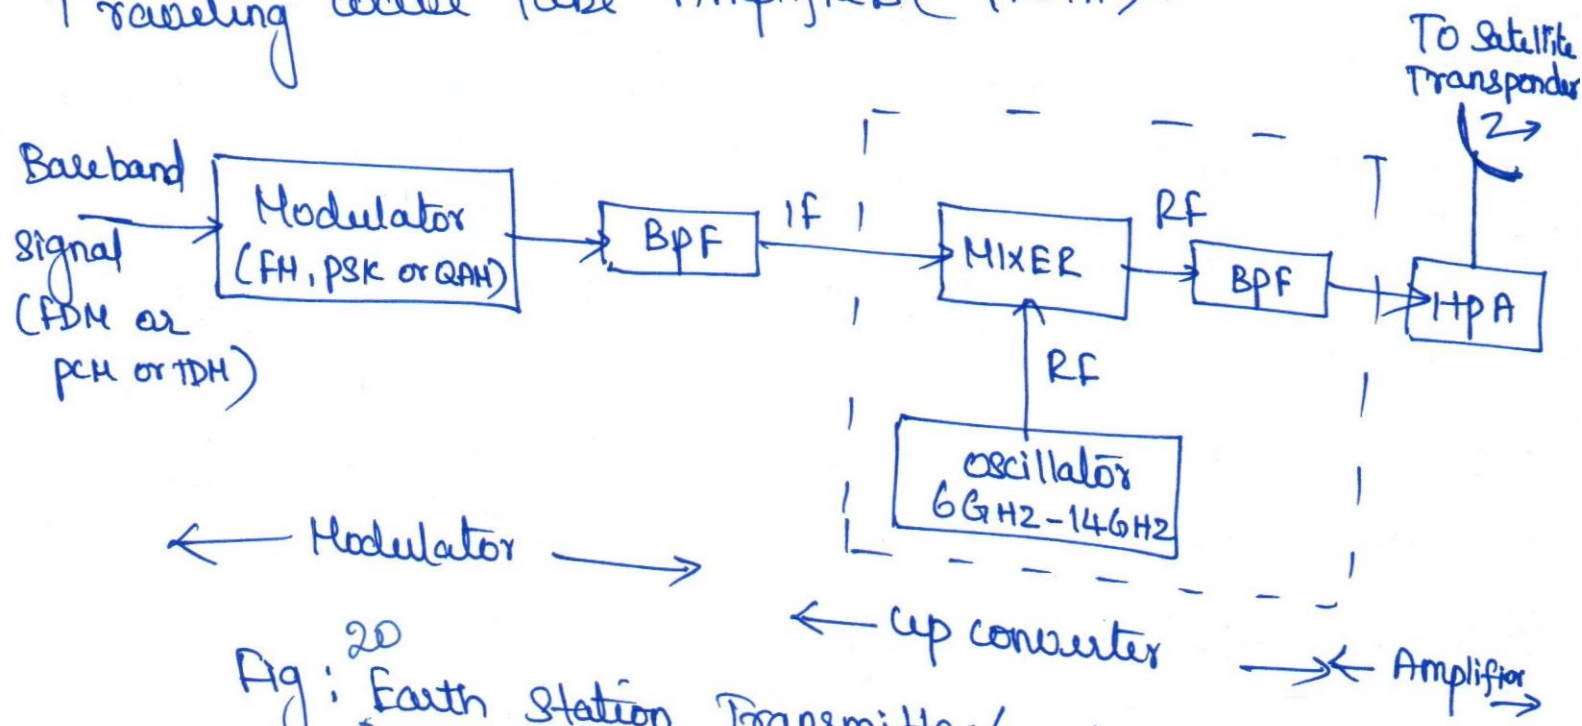 Traveling wave Tube Amplifiers (
To Satellite
Transponder
Baseband
signal
(FDM or
PCM or TDM)
Modulator
(FM, PSK or QAM)
BPF
IF
MIXER
RF
BPF
HPA
RF
Oscillator
6GHz-14GHz
Modulator
Up converter
Amplifier
Fig: 20
Earth Station Transmitter